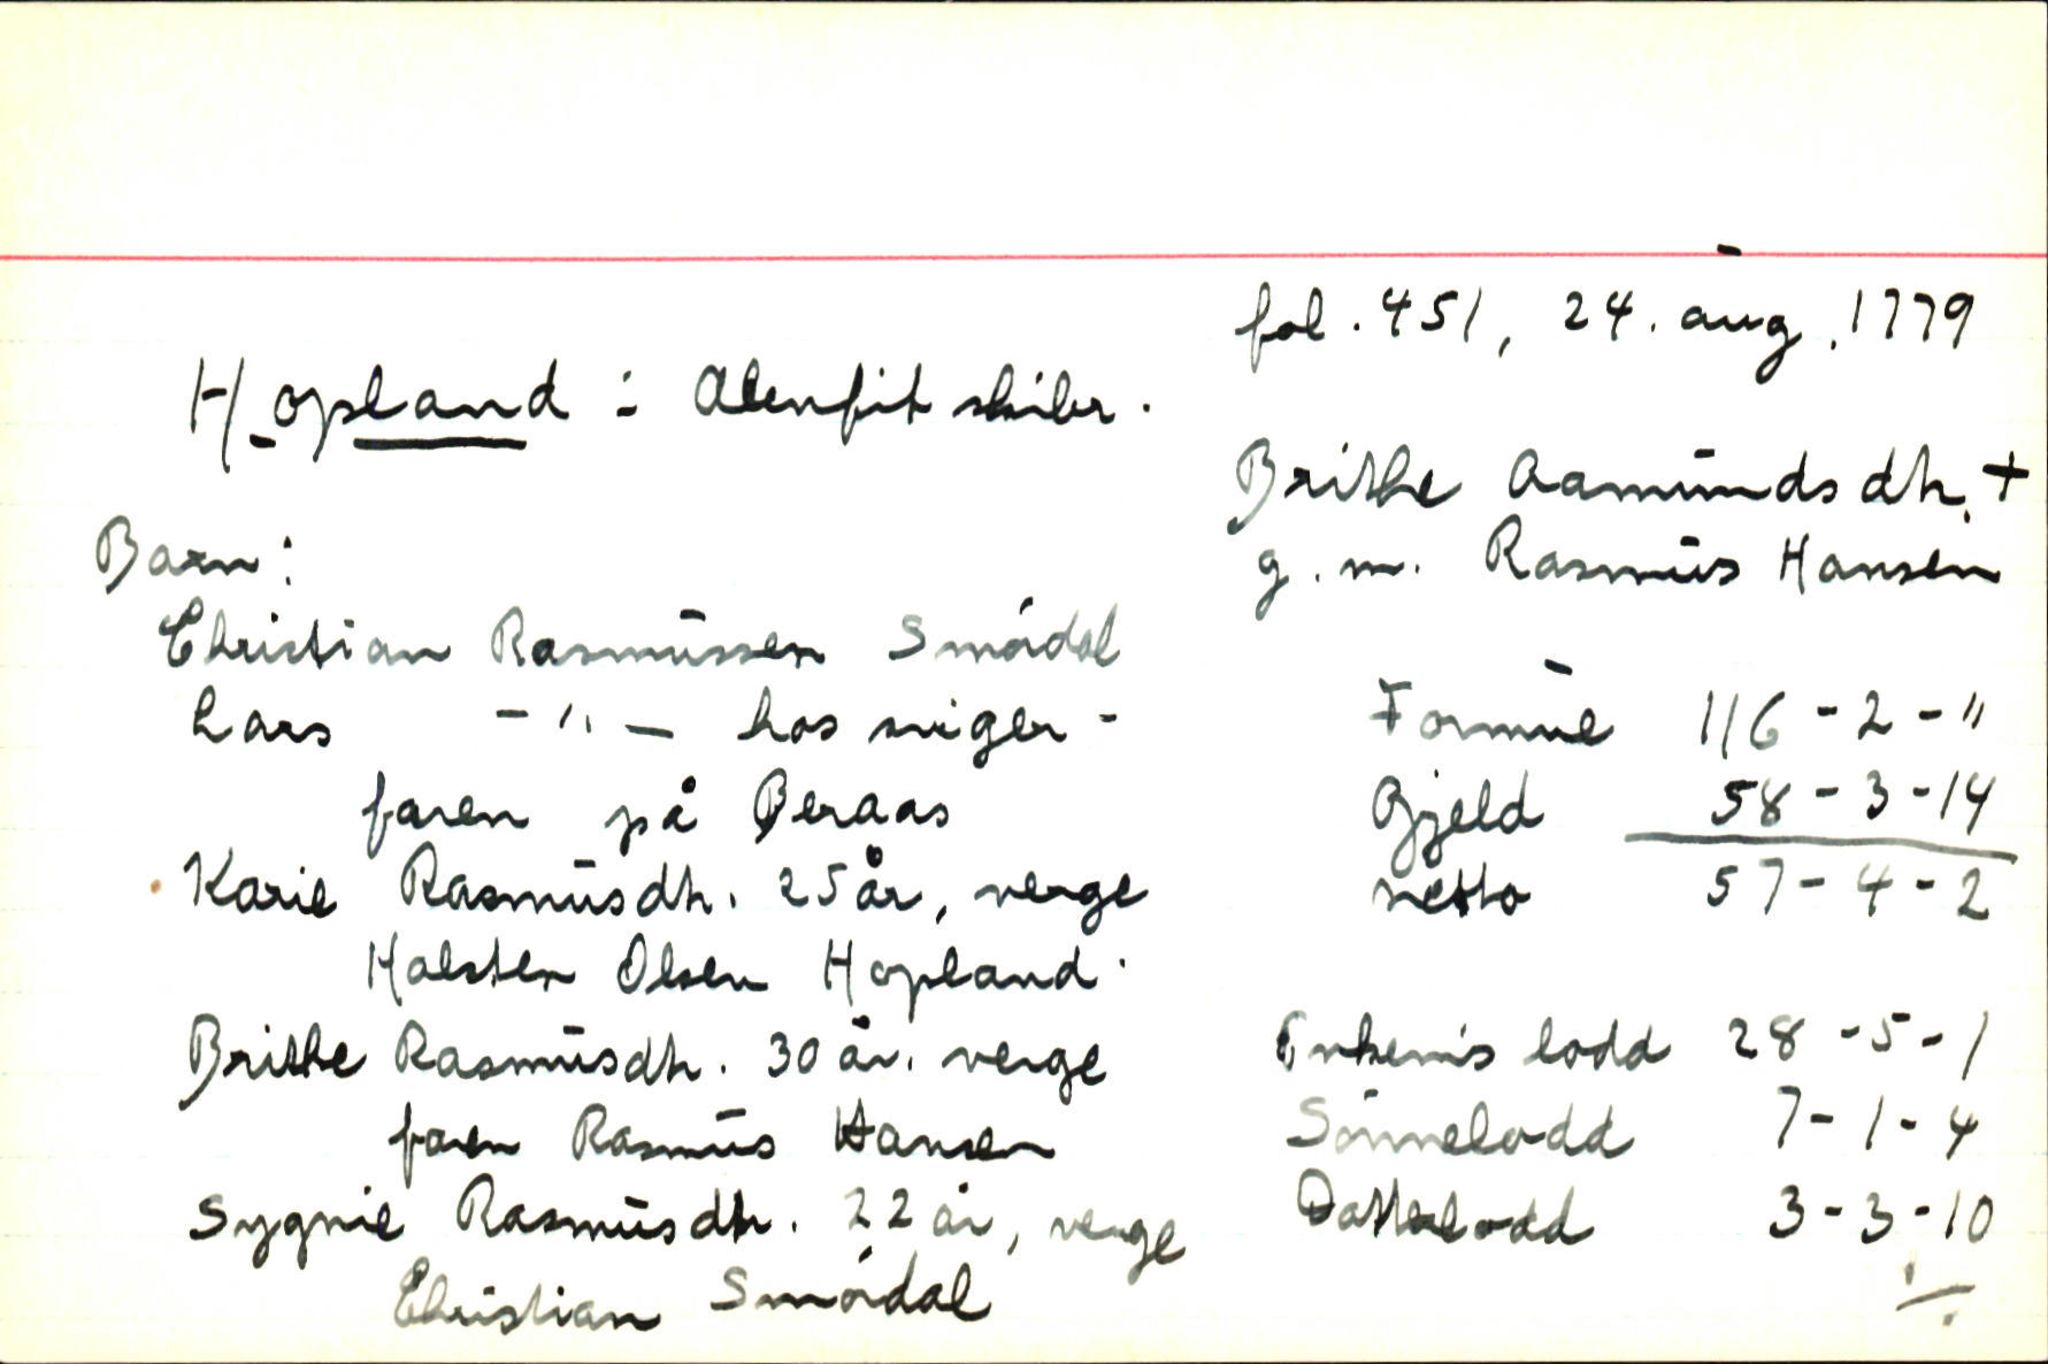 fol. 451, 24. aug. 1779
Hopland : Alenfit skibr.
Brithe Aamunds dtr. +
g. m. Rasmus Hansen
Barn:
Christian Rasmussen Smørdal
Lars - " - hos sviger-
faren på Beraas
Karie Rasmusdtr. 25 år, verge
Halsten Olsen Hopland.
Brithe Rasmusdtr. 30 år. verge
faren Rasmus Hansen
Sygnie Rasmusdtr. 22 år, verge
Christian Smørdal
Formue 116 - 2 - "
Gjeld 58 - 3 - 14
netto 57 - 4 - 2
Enkem's lodd 28 - 5 - 1
Sønnelodd 7 - 1 - 4
Datterlodd 3 - 3 - 10